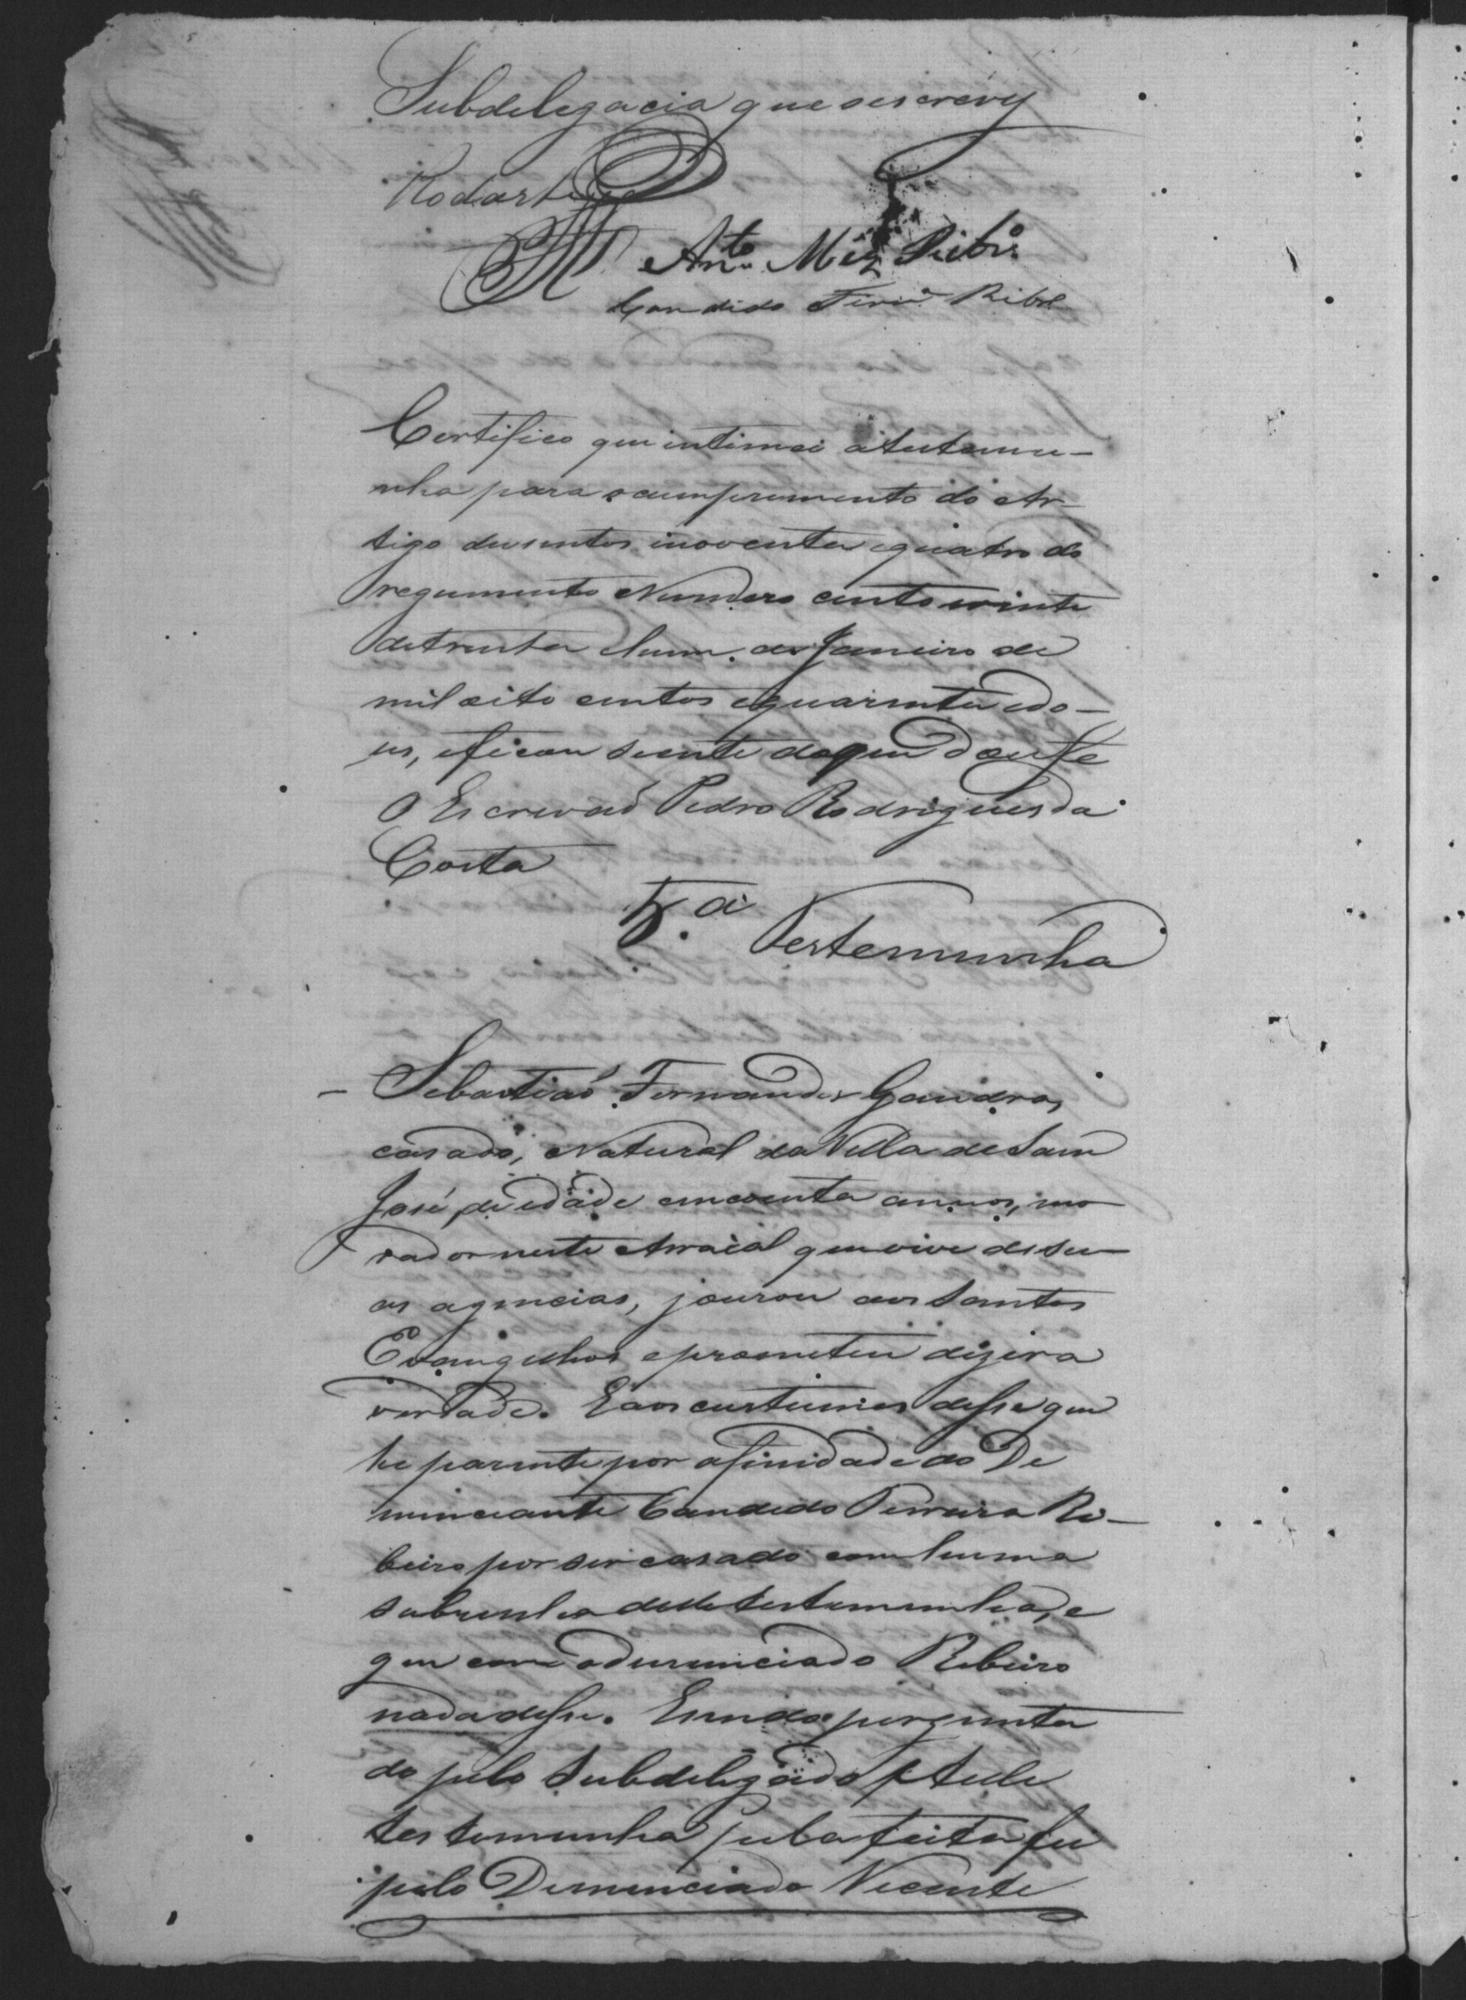 Subdelegacia que o escrevy
Rodarte
Anto. Miz Ribro.
Candido Ferra. Ribro
Certifico que intimei a testemu-
nha para o cumprimento do Ar-
tigo dusentos inoventa equatro do
regumento Numero cento evinte
detrinta ehum de Janeiro de
mil oito centos equarenta edo-
us, eficou siente doque Dou fe
O Escrivaõ Pedro Rodrigues da
Costa
5.a
Testemunha
- Sebastiaõ Fernandes Gandra,
casado, Natural da Villa de Sam
José, de idade cincoenta annos, mo
rador neste Arraial que vive de su-
as agencias, jourou aos Santos
Evangelhos, e prometeu dizer a
verdade. E aos custumes disse que
he parente por afinidade do De
nunciante Candido Ferreira Ri-
beiro por ser casado com huma
sobrinha deste testemunha, e
que com o denunciado Ribeiro
nada disse. E sendo pergunta
do pelo Subdelegado
testemunha pela feita fei
pelo Denunciado Vicente